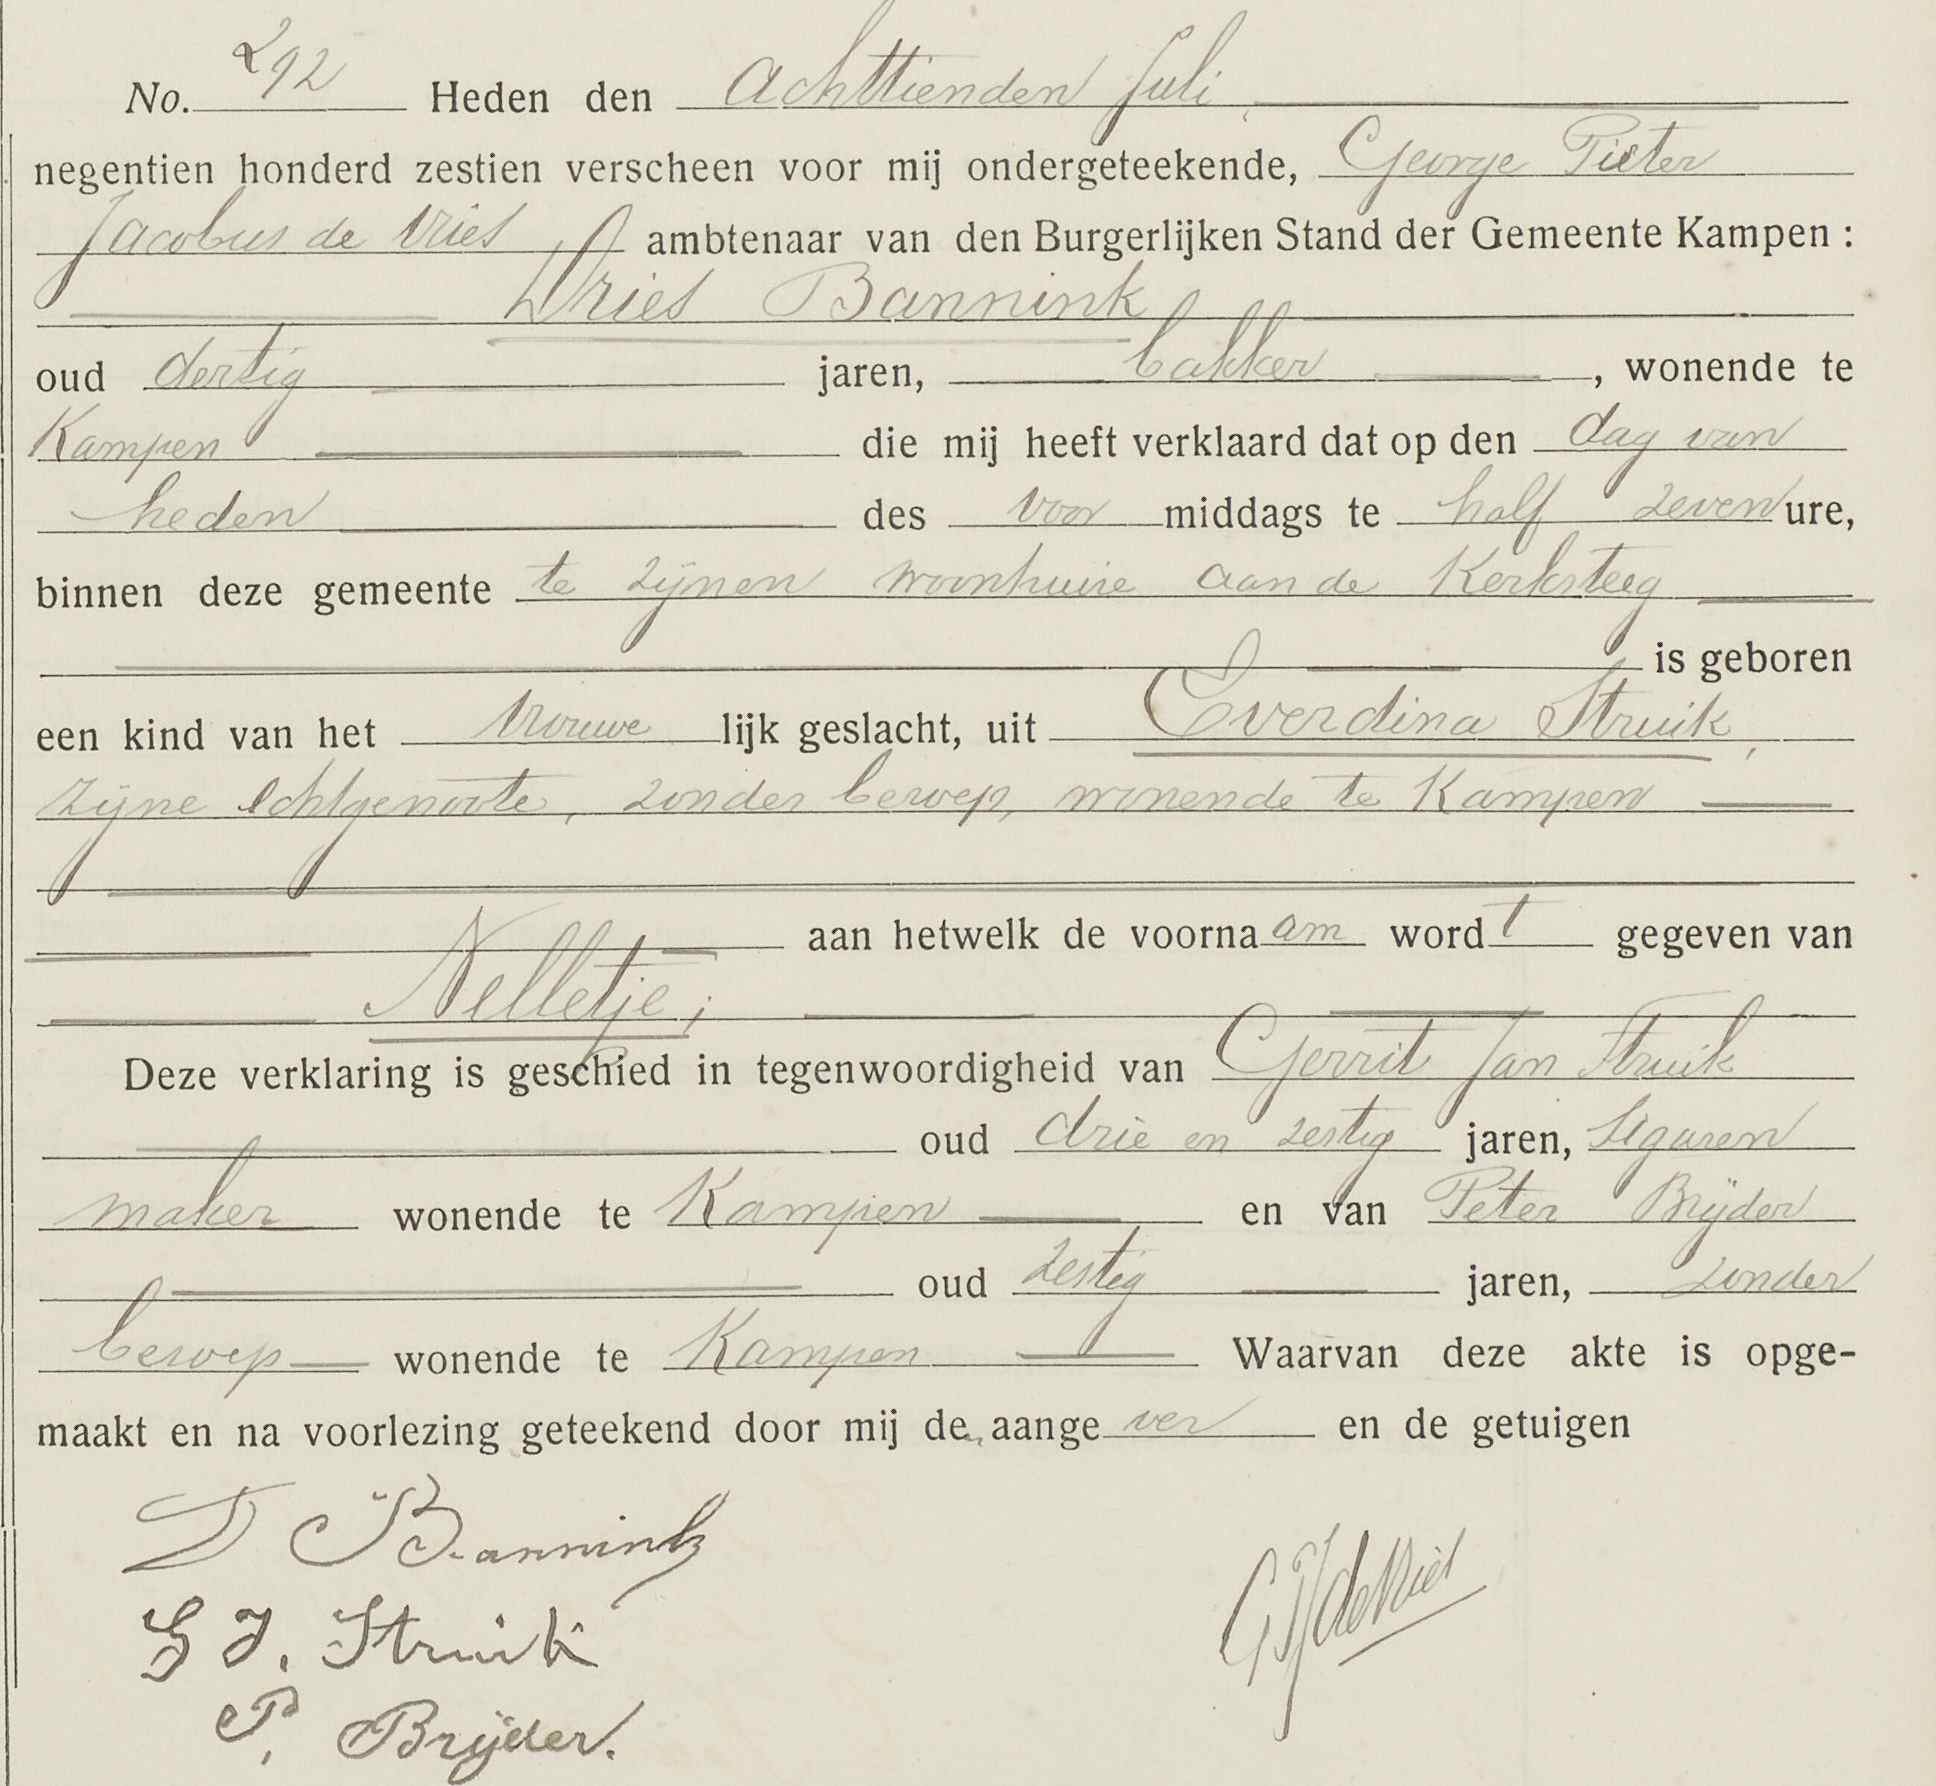 No. 292 Heden den Achttienden Juli,
negentien honderd zestien verscheen voor mij ondergeteekende, George Pieter
Jacobus de Vries ambtenaar van den Burgerlijken Stand der Gemeente Kampen :
Dries Bannink
oud dertig jaren, bakker, wonende te
Kampen die mij heeft verklaard dat op den dag van
heden des voor middags te half zeven ure,
binnen deze gemeente te zijnen woonhuize aan de Kerksteeg
is geboren
een kind van het vrouwe lijk geslacht, uit Everdina Struik,
zijne echtgenoote, zonder beroep, wonende te Kampen
aan hetwelk de voornaam wordt gegeven van
Nelletje;
Deze verklaring is geschied in tegenwoordigheid van Gerrit Jan Struik
oud drie en zestig jaren, sigaren
maker wonende te Kampen en van Peter Brijder
oud zestig jaren, zonder
beroep wonende te Kampen Waarvan deze akte is opge-
maakt en na voorlezing geteekend door mij de aangever en de getuigen
D Bannink
GPJdeVries
G J. Struik
P. Brijder.